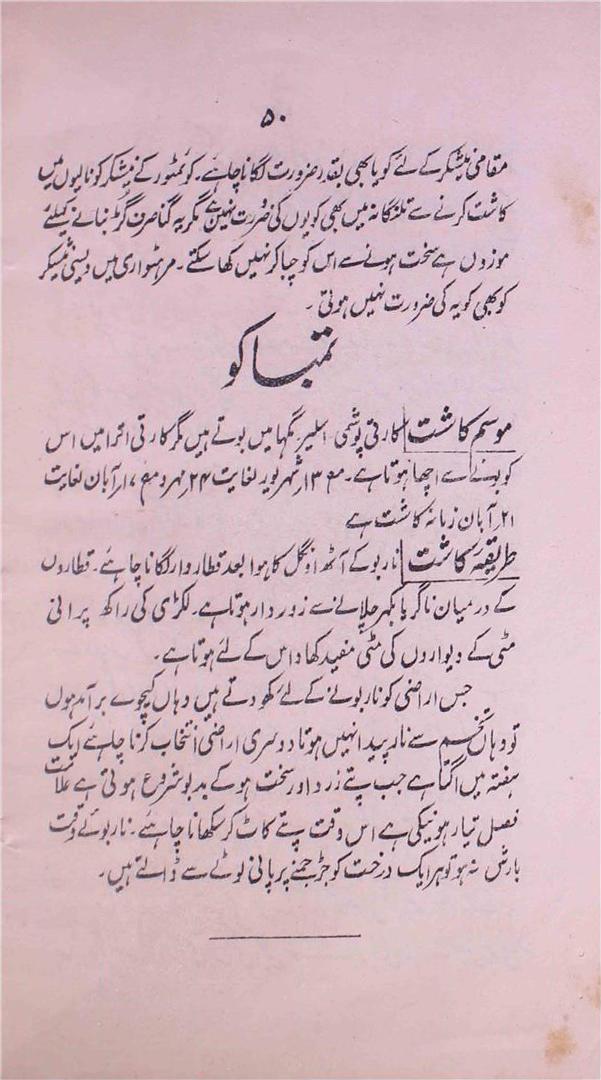 ۵۰
مقامی نیشکر کے لئے کویا بھی بقدر ضرورت لگانا چاہئے۔ کوئمٹور کے نیشکر کو نالیوں میں
کاشت کرنے سے تلنگانہ میں بھی کویوں کی ضرورت نہیں ہے مگر یہ گنا صرف گڑ بنانے کیلئے
موزوں ہے سخت ہونے سے اس کو چبا کر نہیں کھا سکتے۔ مرہٹواری میں دیسی نیشکر
کو بھی کویہ کی ضرورت نہیں ہوتی۔
تمباکو
موسم کاشت کارتی پوشمی اسلیر مگھا میں بوتے ہیں مگر کارتی اترا میں اس
کو بونے سے اچھا ہوتا ہے۔ ۱۳ شہریور لغایت ۲۴ مہر و ۷ آبان لغایت
۲۱ آبان زمانہ کاشت ہے
طریقہ کاشت نار بو کے آٹھ اونگل کا ہوا بعد قطار وار لگانا چاہئے۔ قطاروں
کے درمیان ناگر یا بکھر چلانے سے زور دار ہوتا ہے۔ لکڑی کی راکھ پرانی
مٹی کے دیواروں کی مٹی مفید کھاد اس کے لئے ہوتا ہے۔
جس اراضی کو نار بونے کے لئے کھودتے ہیں وہاں کیچوے برآمد ہوں
تو وہاں تخم سے نار پیدا نہیں ہوتا دوسری اراضی انتخاب کرنا چاہئے ایک
ہفتہ میں اگتا ہے جب پتے زرد اور سخت ہو کے بدبو شروع ہوتی ہے علامت
فصل تیار ہونیکی ہے اس وقت پتے کاٹ کر سکھانا چاہئے۔ نار بوئے وقت
بارش نہ ہو تو ہر ایک درخت کو جڑ جمنے پر پانی لوٹے سے ڈالتے ہیں۔